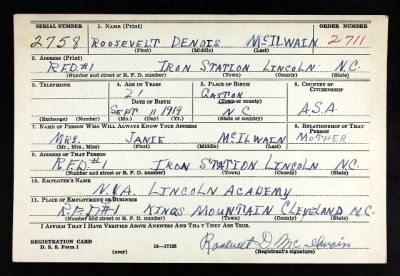 SERIAL NUMBER 1. NAME (Print) ORDER NUMBER
2758 ROOSEVELT DENOIS McILWAIN 2711
(First) (Middle) (Last)
2. ADDRESS (Print)
R.F.D.#1 IRON STATION LINCOLN N.C.
(Number and street or R. F. D. number) (Town) (County) (State)
3. TELEPHONE 4. AGE IN YEARS 5. PLACE OF BIRTH 6. COUNTRY OF CITIZENSHIP
21 GASTON
DATE OF BIRTH (Town or county)
SEPT 11 1919 N C A.S.A.
(Exchange) (Number) (Mo.) (Day) (Yr.) (State or country)
7. NAME OF PERSON WHO WILL ALWAYS KNOW YOUR ADDRESS 8. RELATIONSHIP OF THAT PERSON
MRS. JANIE McILWAIN MOTHER
(Mr., Mrs., Miss) (First) (Middle) (Last)
9. ADDRESS OF THAT PERSON
R.F.D.#1 IRON STATION LINCOLN N.C.
(Number and street or R. F. D. number) (Town) (County) (State)
10. EMPLOYER'S NAME
N.Y.A. LINCOLN ACADEMY
11. PLACE OF EMPLOYMENT OR BUSINESS
R.F.D#1 KINGS MOUNTAIN CLEVELAND N.C.
(Number and street or R. F. D. number) (Town) (County) (State)
I AFFIRM THAT I HAVE VERIFIED ABOVE ANSWERS AND THAT THEY ARE TRUE.
REGISTRATION CARD
D. S. S. Form 1 (over) 16—17105 Roosevelt D. McIlwain
(Registrant's signature)